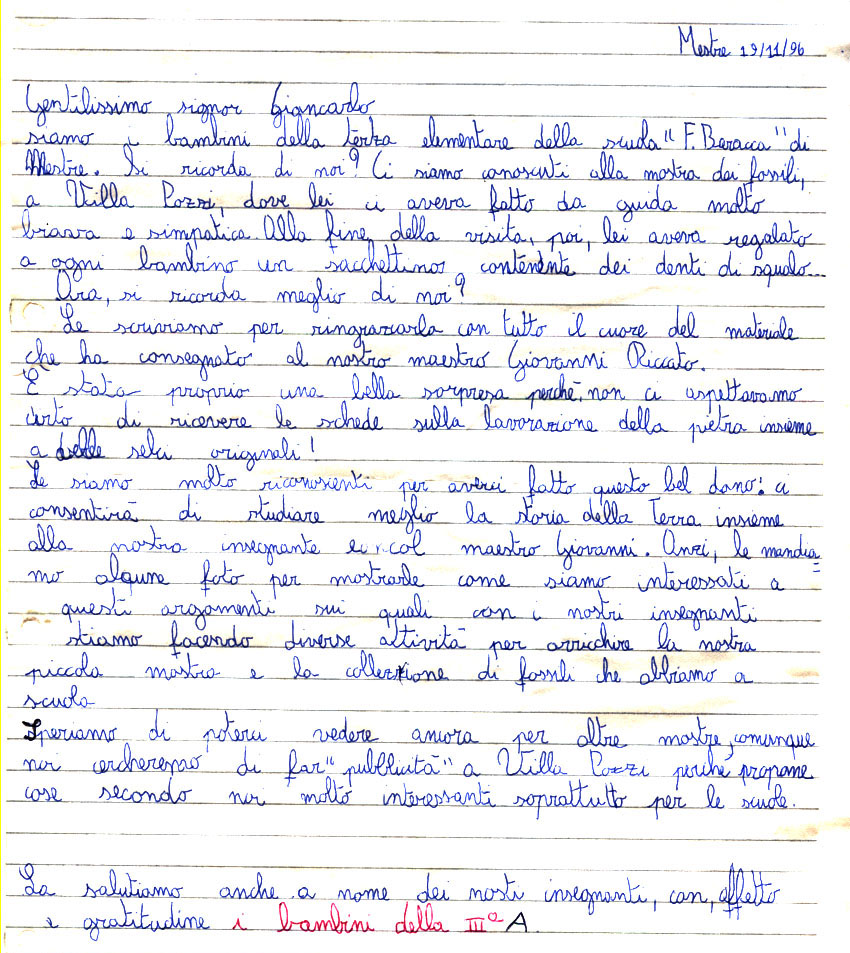 Mestre 19/11/96
Gentilissimo signor Giancarlo
siamo i bambini della terza elementare della scuola "F. Baracca" di
Mestre. Si ricorda di noi? Ci siamo conosciuti alla mostra dai fossili,
a Villa Pozzi, dove lei ci aveva fatto da guida molto
brava e simpatica. Alla fine, della visita, poi, lei aveva regalato
a ogni bambino un sacchettinos contenente dei denti di squalo...
Ora, si ricorda meglio di noi?
Le scriviamo per ringraziarla con tutto il cuore del materiale
che ha consegnato al nostro maestro Giovanni Riccato.
È stata proprio una bella sorpresa perché, non ci aspettavamo
certo di ricevere le schede sulla lavorazione della pietra insieme
a delle selci originali!
Le siamo molto riconoscenti per averci fatto questo bel dono: ci
consentirà di studiare meglio la storia della Terra insieme
alla nostra insegnante e col maestro Giovanni. Anzi, le mandia=
mo alcune foto per mostrarle come siamo interessati a
questi argomenti sui quali con i nostri insegnanti
stiamo facendo diverse attività per arricchire la nostra
piccola mostra e la collezione di fossili che abbiamo a
scuola
Speriamo di poterci vedere ancora per altre mostre, comunque
noi cercheremo di far "pubblicità" a Villa Pozzi perché propone
cose secondo noi molto interessanti soprattutto per le scuole.
La salutiamo anche a nome dei nosti insegnanti, con, affetto
e gratitudine i bambini della IIIª A.